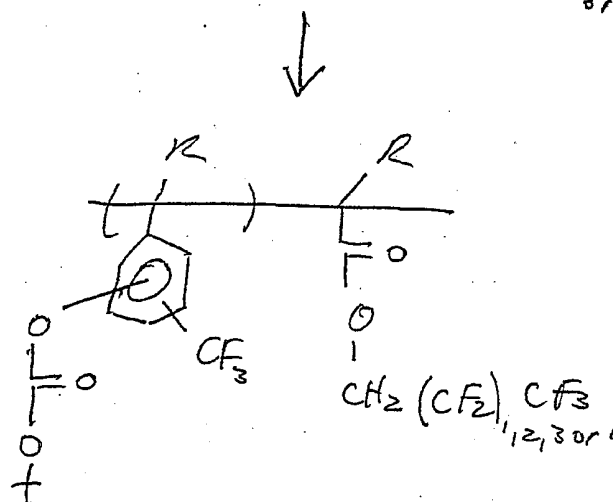 or
R R
( )
O
CF3
O
O
O
O
CH2 (CF2)1,2,3 or CF3